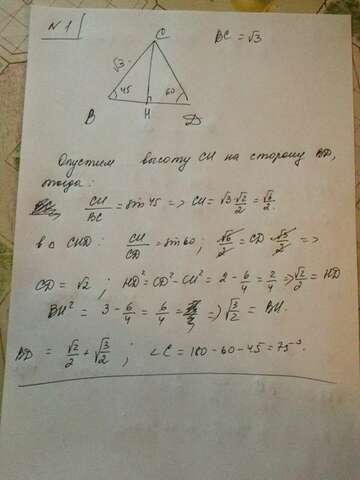 N 1
BC = √3
C
√3
45
60
B
H
D
Опустим высоту CH на сторону BD,
тогда:
CH/BC = sin 45 => CH = √3·√2/2 = √6/2.
в Δ CHD: CH/CD = sin 60; √6/2 = CD √3/2 =>
CD = √2; HD² = CD² - CH² = 2 - 6/4 = 2/4 => √2/2 = HD
BH² = 3 - 6/4 = 6/4 = => √3/2 = BH.
BD = √2/2 + √3/2; ∠C = 180 - 60 - 45 = 75°.